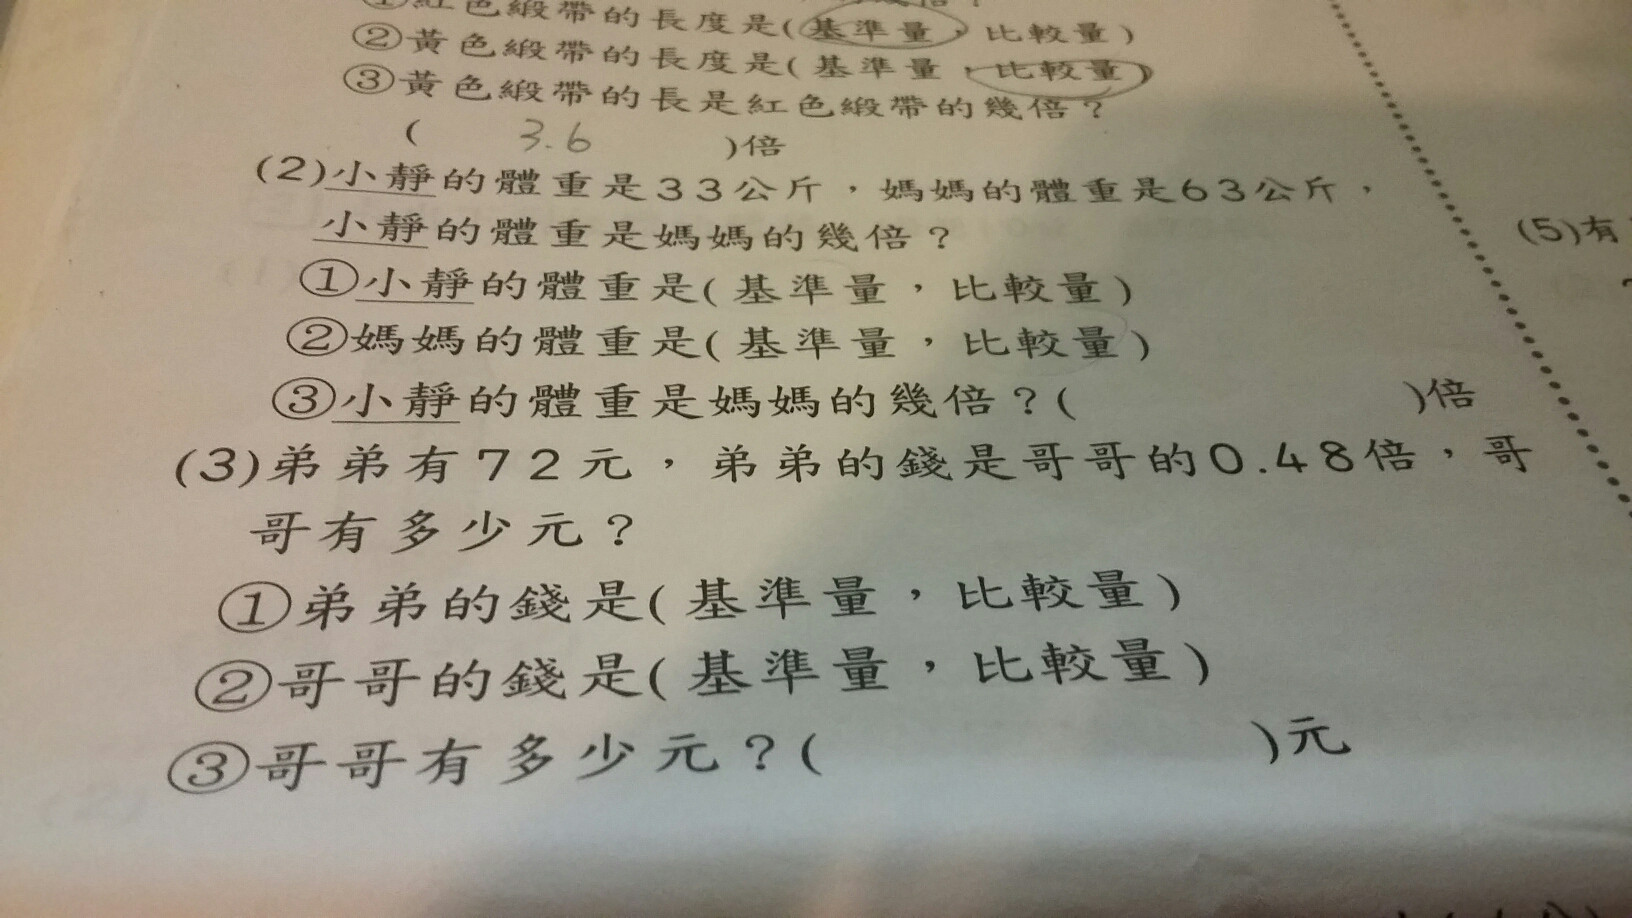 ①紅色緞帶的長度是(基準量，比較量)
②黃色緞帶的長度是(基準量，比較量)
③黃色緞帶的長是紅色緞帶的幾倍？
( 3.6 )倍
(2)小靜的體重是33公斤，媽媽的體重是63公斤，
小靜的體重是媽媽的幾倍？
①小靜的體重是(基準量，比較量)
②媽媽的體重是(基準量，比較量)
③小靜的體重是媽媽的幾倍？( )倍
(3)弟弟有72元，弟弟的錢是哥哥的0.48倍，哥
哥有多少元？
①弟弟的錢是(基準量，比較量)
②哥哥的錢是(基準量，比較量)
③哥哥有多少元？( )元
(5)有